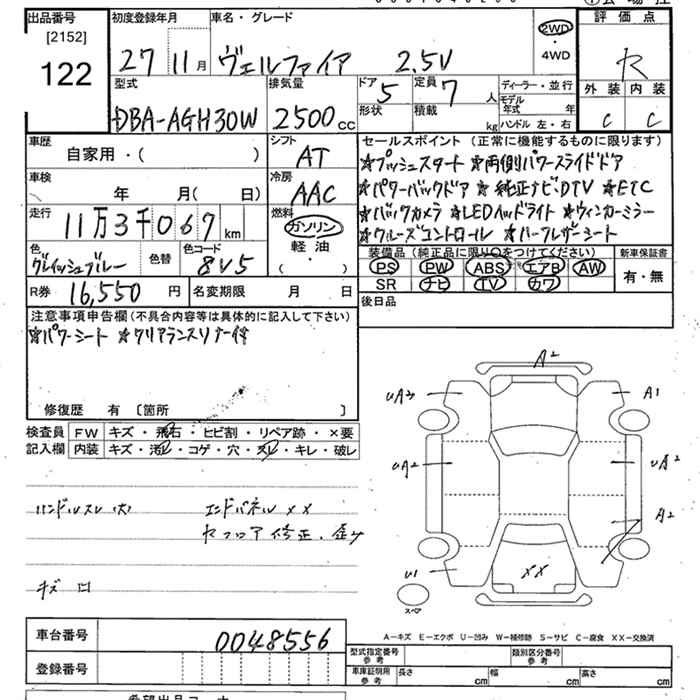 出品番号
[2152]
122
初度登録年月
27 11月
車名・グレード
ヴェルファイア 2.5V
2WD
・
4WD
評価点
外装 内装
C C
型式
DBA-AGH30W
排気量
2500cc
ドア 5
形状
定員 7人
積載 kg
ディーラー・並行
モデル年式 年
ハンドル 左・右
車歴
自家用・( )
シフト
AT
車検
年 月( 日)
冷房
AAC
走行
11万3千067km
燃料
ガソリン
軽油
・( )
色
グレイッシュブルー
色替
色コード
8V5
R券 16,550円
名変期限 月 日
セールスポイント(正常に機能するものに限ります)
☆プッシュスタート ☆両側パワースライドドア
☆パワーバックドア ☆純正ナビ・DTV ☆ETC
☆バックカメラ ☆LEDヘッドライト ☆ウィンカーミラー
☆クルーズコントロール ☆ハーフレザーシート
装備品(純正品に限り〇をつけてください)
PS PW ABS エアB AW
SR ナビ TV カワ
新車保証書
有・無
後日品
注意事項申告欄(不具合内容等は具体的に記入して下さい)
☆パワーシート ☆クリアランスソナー付
修復歴 有 〔箇所 〕
検査員記入欄
FW キズ・飛石・ヒビ割・リペア跡・×要
内装 キズ・汚レ・コゲ・穴・スレ・キレ・破レ
ハンドルスレ(大)
エンドパネル ××
セフロア修正、歪ミ
キズ 凹
A2
UA2
A1
UA2
UA2
A2
U1
××
スペア
A-キズ E-エクボ U-凹み W-補修跡 S-サビ C-腐食 XX-交換済
車台番号 0048556
登録番号
型式指定番号 参考
類別区分番号 参考
車庫証明用 参考
長さ cm
幅 cm
高さ cm